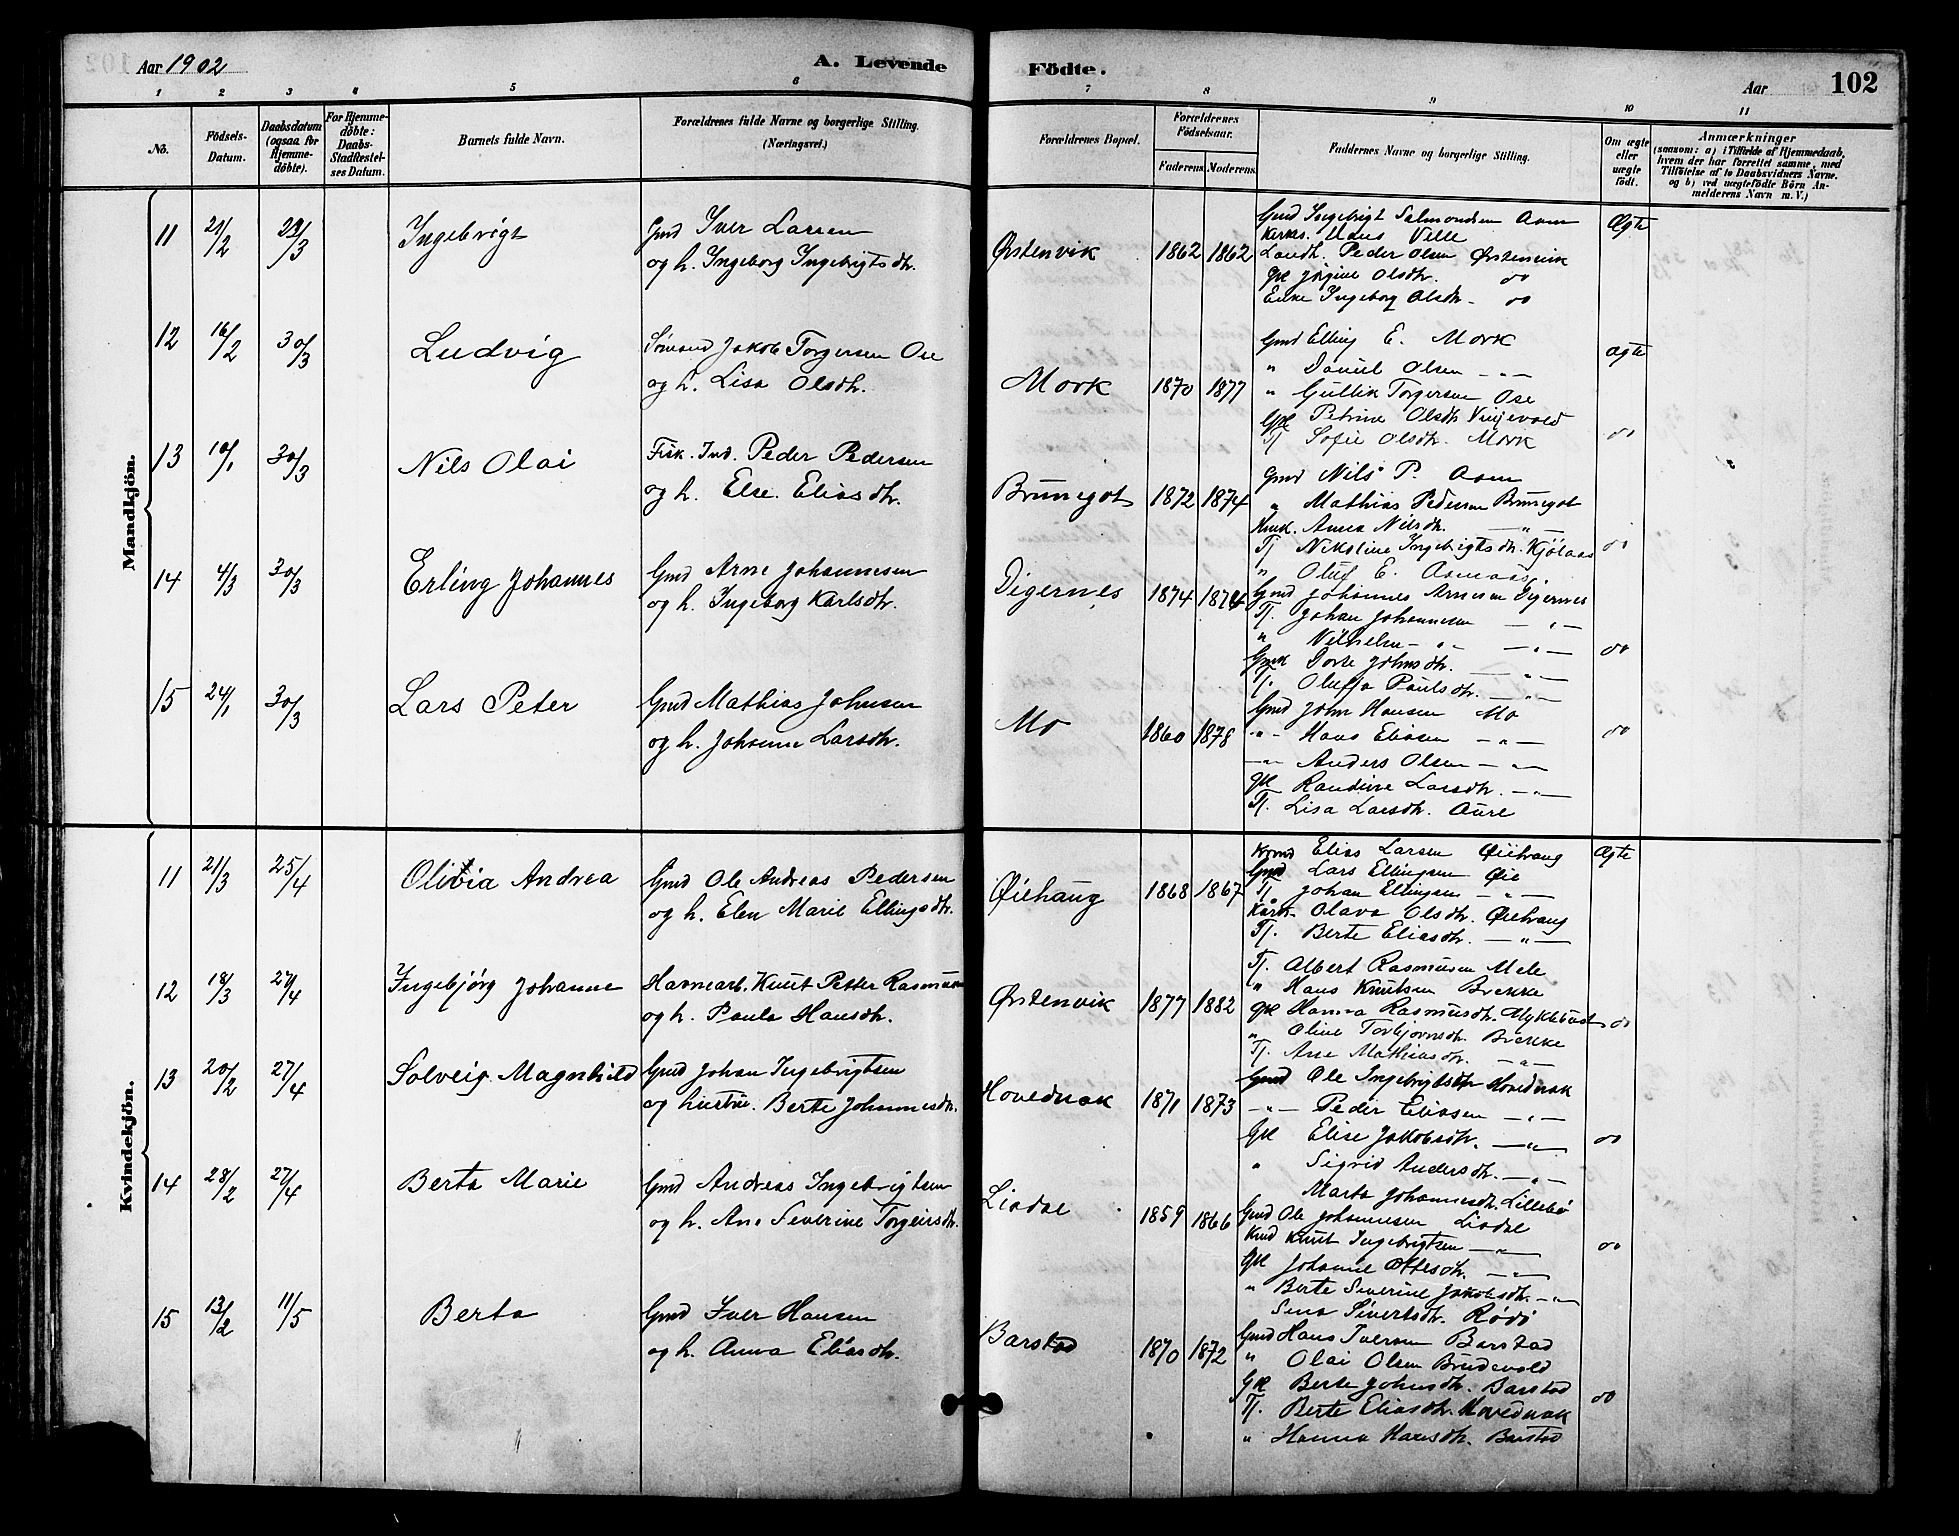 Aar 1902
A. Levende
Födte.
Aar
102
1 2 3 4 5 6 7 8 9 10 11
No.
Födsels-Datum.
Daabsdatum (ogsaa for Hjemme-döbte).
For Hjemme-döbte: Daabs-Stadfæstel-ses Datum.
Barnets fulde Navn.
Forældrenes fulde Navne og borgerlige Stilling. (Næringsvei.)
Forældrenes Bopæl.
Forældrenes Födselsaar.
Faderens. Moderens.
Faddernes Navne og borgerlige Stilling.
Om ægte eller uægte födt.
Anmærkninger
(saasom: a) i Tilfælde af Hjemmedaab, hvem der har forrettet samme, med Tilföielse af to Daabsvidners Navne, og b) ved uægtefödte Börn An-melderens Navn m. V.)
Mandkjön.
11 21/2 23/3 Ingebrigt
Gmd Iver Larsen
og h. Ingeborg Ingebrigtsdtr.
Ørstenvik 1862 1862
Gmd Ingebrigt Salmondsen Aam
Kirkes. Hans Velle
Landh. Peder Olsen Ørstenvik
Gpl Jørgine Olsdtr. do
Enke Ingeborg Olsdtr. do
Ægte
12 16/2 30/3 Ludvig
Sömand Jakob Torgersen Ose
og h. Lisa Olsdtr.
Mork 1870 1877
Gmd Elling E. Mork
" Daniel Olsen — " —
" Gullik Torgersen Ose
Gpl Petrine Olsdtr Vinjevold
Tj Sofie Olsdtr. Mork
ægte
13 10/1 30/3 Nils Olai
Fisk. Ind. Peder Pedersen
og h. Else Eliasdtr.
Brunegot 1872 1874
Gmd Nils P. Aam
" Mathias Pedersen Brunegot
Kmk. Anna Nilsdtr. — " —
Tj Nikoline Ingebrigtsdtr. Kjölaas
" Oluf E. Aamaas
do
14 4/3 30/3 Erling Johannes
Gmd Arne Johannesen
og h. Ingeborg Karlsdtr.
Digernes 1874 1874
Gmd Johannes Arnesen Digernes
Tj. Johan Johannesen — " —
" Vilhelm — " — — " —
Gmk Dorte Johnsdtr. — " —
Tj. Oluffa Paulsdtr. — " —
do
15 24/1 30/3 Lars Peter
Gmd Mathias Johnsen
og h. Johanne Larsdtr.
Mo 1860 1878
Gmd John Hansen Mo
— " — Hans Eliasen — " —
— " — Anders Olsen — " —
Gpl Randine Larsdtr. — " —
Tj. Lisa Larsdtr. Aure
do
Kvindekjön.
11 21/3 25/4 Olivia Andrea
Gmd Ole Andreas Pedersen
og h. Elen Marie Ellingsdtr.
Øiehaug 1868 1867
Elias Larsen Øiehaug
Gmd Lars Ellingsen Øie
Tj Johan Ellingsen — " —
Olava Olsdtr. Øiehaug
Tj. Berte Eliasdtr. — " —
Ægte
12 18/3 27/4 Ingebjörg Johanne
Havnearb. Knut Petter Rasmussen
og h. Paula Hansdtr.
Ørstenvik 1877 1882
Tj. Albert Rasmusen Mele
" Hans Knutsen Brekke
Gpl Hanna Rasmusdtr. Myklebust
" Oline Torbjörnsdtr. Brekke
Tj. Ane Mathiasdtr. — " —
do
13 20/2 27/4 Solveig Magnhild
Gmd Johan Ingebrigtsen
og hustru Berte Johannesdtr.
Hovednak 1871 1873
Gmd Ole Ingebrigtsen Hovednak
— " — Peder Eliasen — " —
Gpl Elise Jakobsdtr. — " —
" Sigrid Andersdtr. — " —
Marta Johannesdtr. Lillebö
do
14 28/2 27/4 Berta Marie
Gmd Andreas Ingebrigtsen
og h. Ane Severine Torgeirsdtr.
Liadal 1859 1866
Gmd Ole Johannesen Liadal
Kmd Knut Ingebrigtsen — " —
Gpl Johanne Ottesdtr. — " —
" Berte Severine Jakobsdtr. — " —
Sena Sivertsdtr. Rödö
do
15 13/2 11/5 Berta
Gmd Iver Hansen
og h. Anna Eliasdtr.
Barstad 1870 1872
Gmd Hans Iversen Barstad
" Olai Olsen Brudevold
Gpl Berte Johnsdtr. Barstad
Tj. Berte Eliasdtr. Hovednak
" Hanna Hansdtr. Barstad
do